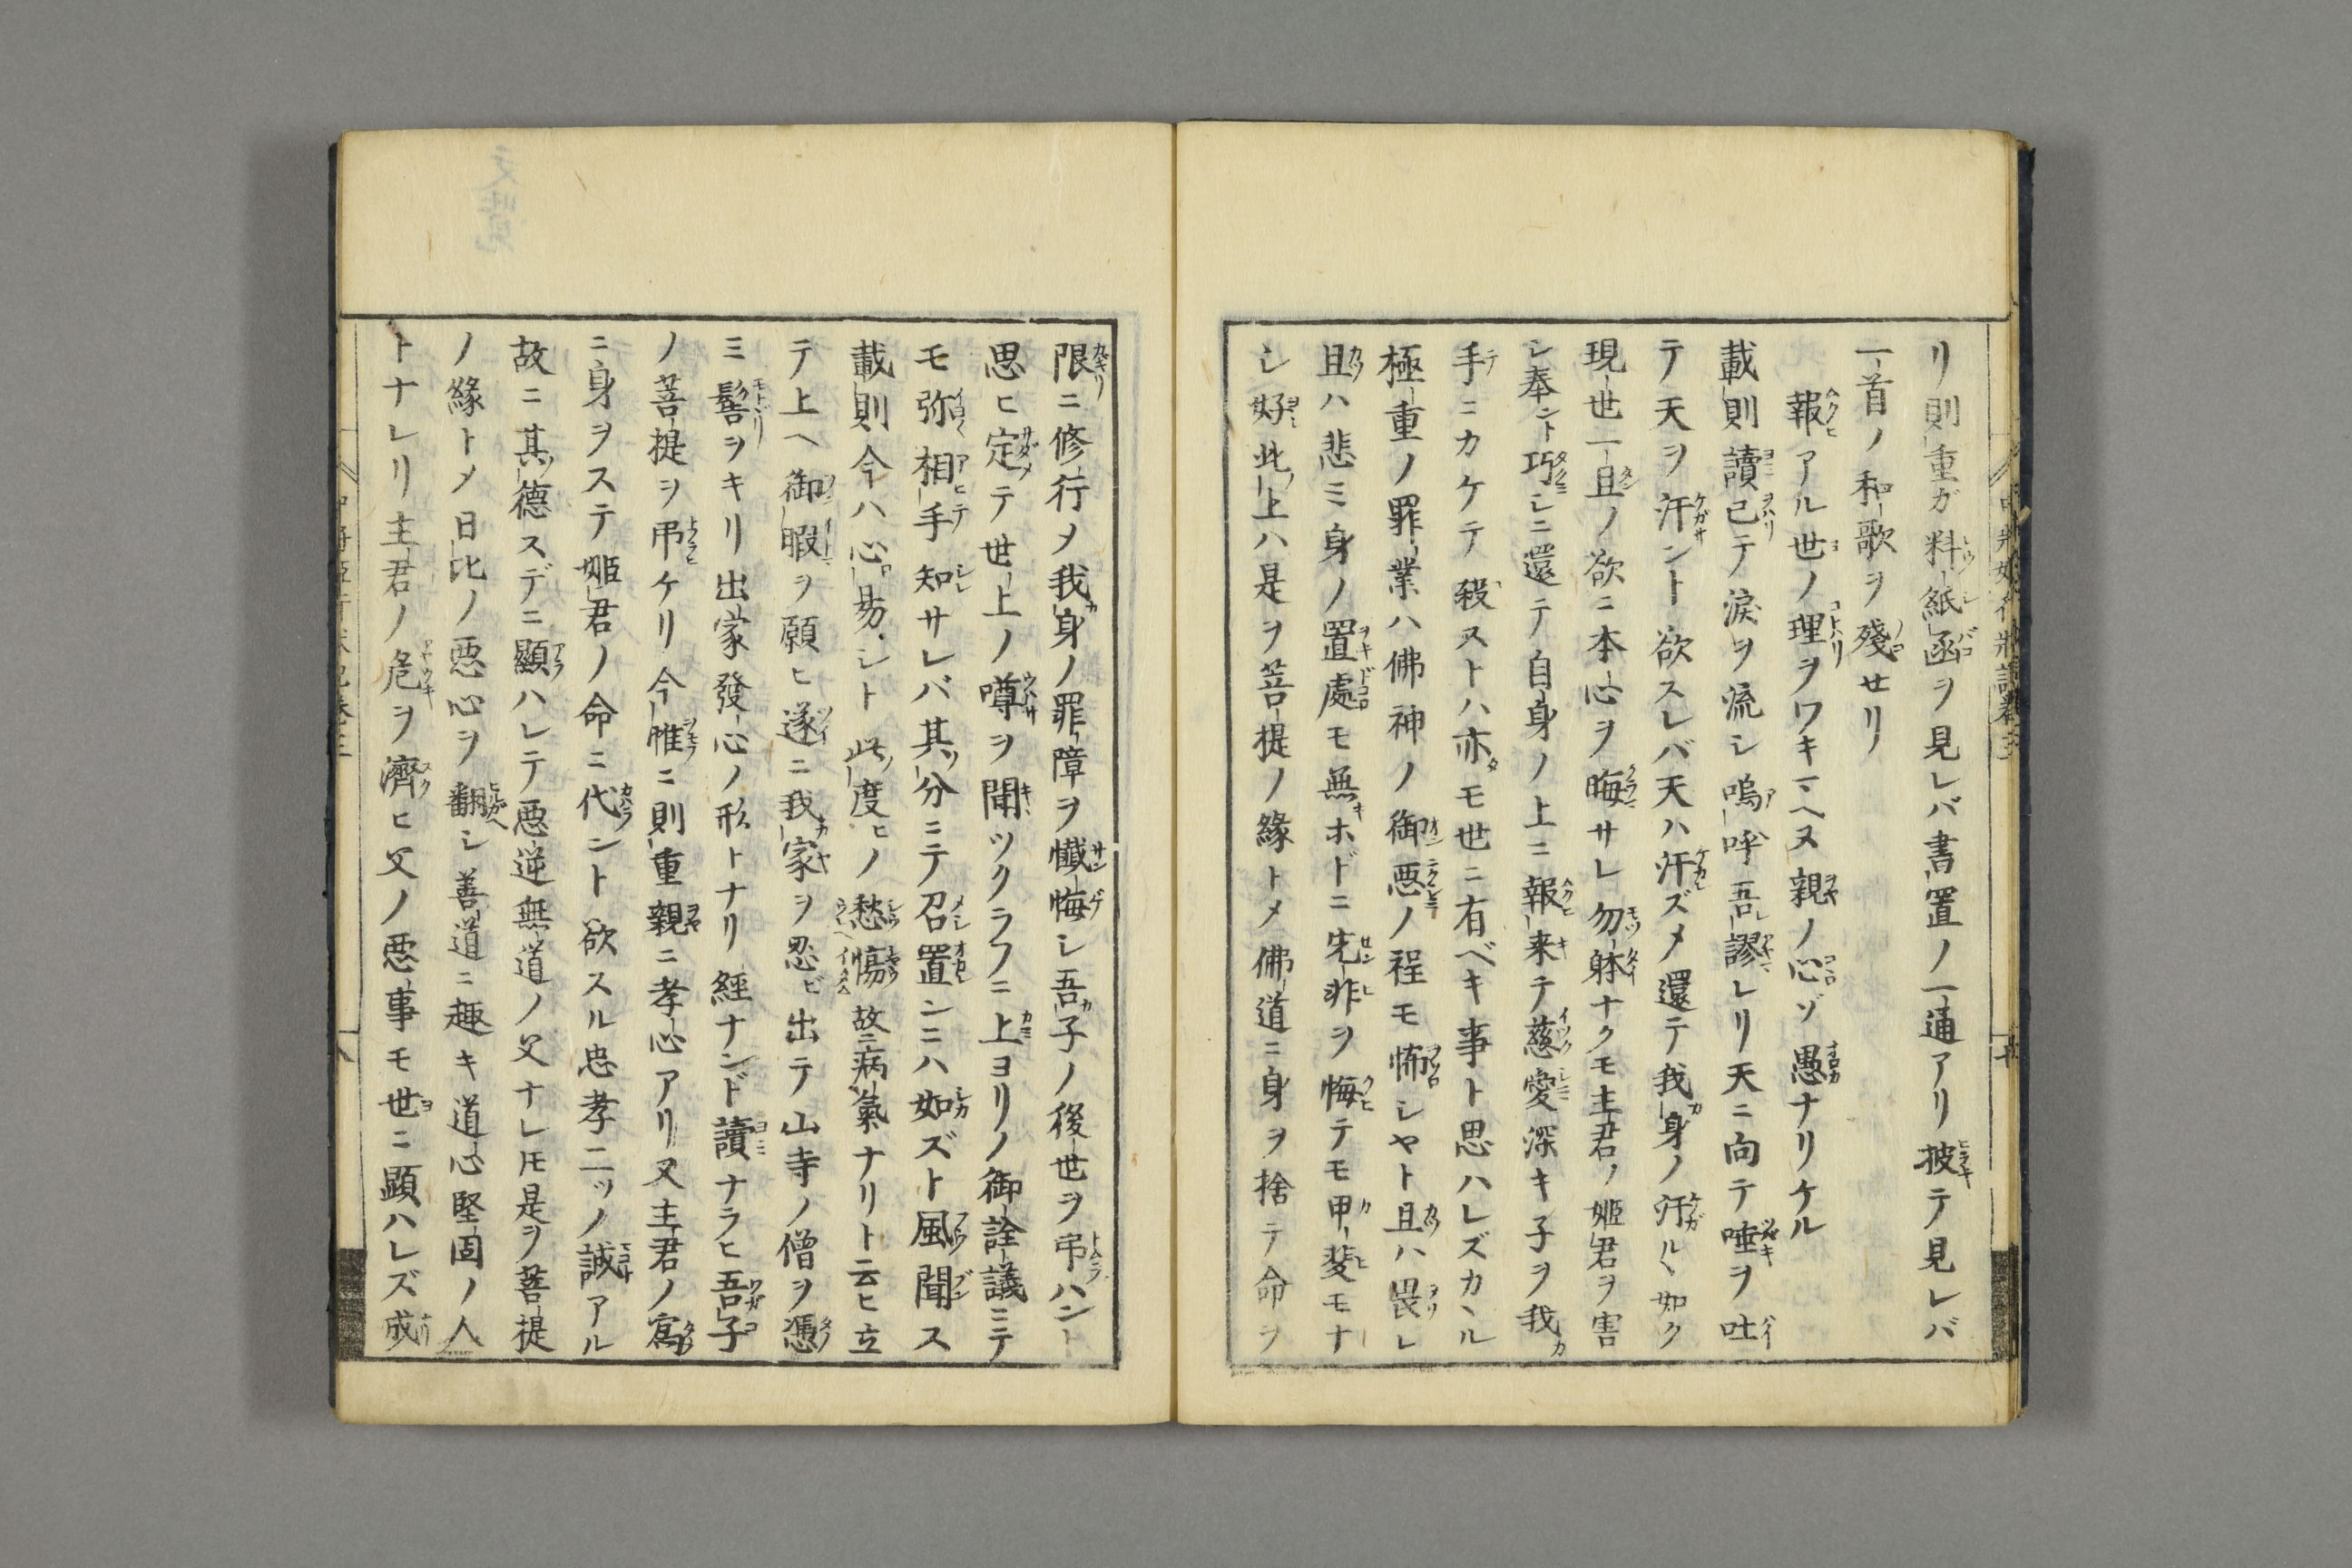 リ則重ガ料紙函ヲ見レバ書置ノ一通アリ披テ見レバ
一首ノ和歌ヲ殘セリ
報アル世ノ理ヲワキマヘヌ親ノ心ゾ愚ナリケル
載則讀已テ淚ヲ流シ嗚呼吾謬レリ天ニ向テ唾ヲ吐
テ天ヲ汗ント欲スレバ天ハ汗ズメ還テ我身ノ汗ルヽ如ク
現世一旦ノ欲ニ本心ヲ晦サレ勿躰ナクモ主君ノ姬君ヲ害
シ奉ント巧シニ還テ自身ノ上ニ報来テ慈愛深キ子ヲ我
手ニカケテ殺ストハ亦モ世ニ有ベキ事ト思ハレズカヽル
極重ノ罪業ハ佛神ノ御悪ノ程モ怖シヤト且ハ畏レ
且ハ悲ミ身ノ置處モ無ホドニ先非ヲ悔テモ甲斐モナ
シ好此上ハ是ヲ菩提ノ緣トメ佛道ニ身ヲ捨テ命ヲ
限ニ修行メ我身ノ罪障ヲ懺悔シ吾子ノ後世ヲ弔ハント
思ヒ定テ世上ノ噂ヲ聞ツクラフニ上ヨリノ御詮議ニテ
モ弥相手知サレバ其分ニテ召置ンニハ如ズト風聞ス
載則今ハ心易シト此度ヒノ愁傷故ニ病氣ナリト云ヒ立
テ上ヘ御暇ヲ願ヒ遂ニ我家ヲ忍ビ出テ山寺ノ僧ヲ憑
ミ髻ヲキリ出家發心ノ形トナリ經ナンド讀ナラヒ吾子
ノ菩提ヲ弔ケリ今惟ニ則重親ニ孝心アリ又主君ノ寫
ニ身ヲステ姬君ノ命ニ代ント欲スル忠孝二ツノ誠アル
故ニ其德スデニ顯ハレテ悪逆無道ノ父ナレ𪜈是ヲ菩提
ノ緣トメ日比ノ悪心ヲ翻シ善道ニ趣キ道心堅固ノ人
トナレリ主君ノ危ヲ濟ヒ父ノ悪事モ世ニ顕ハレズ成